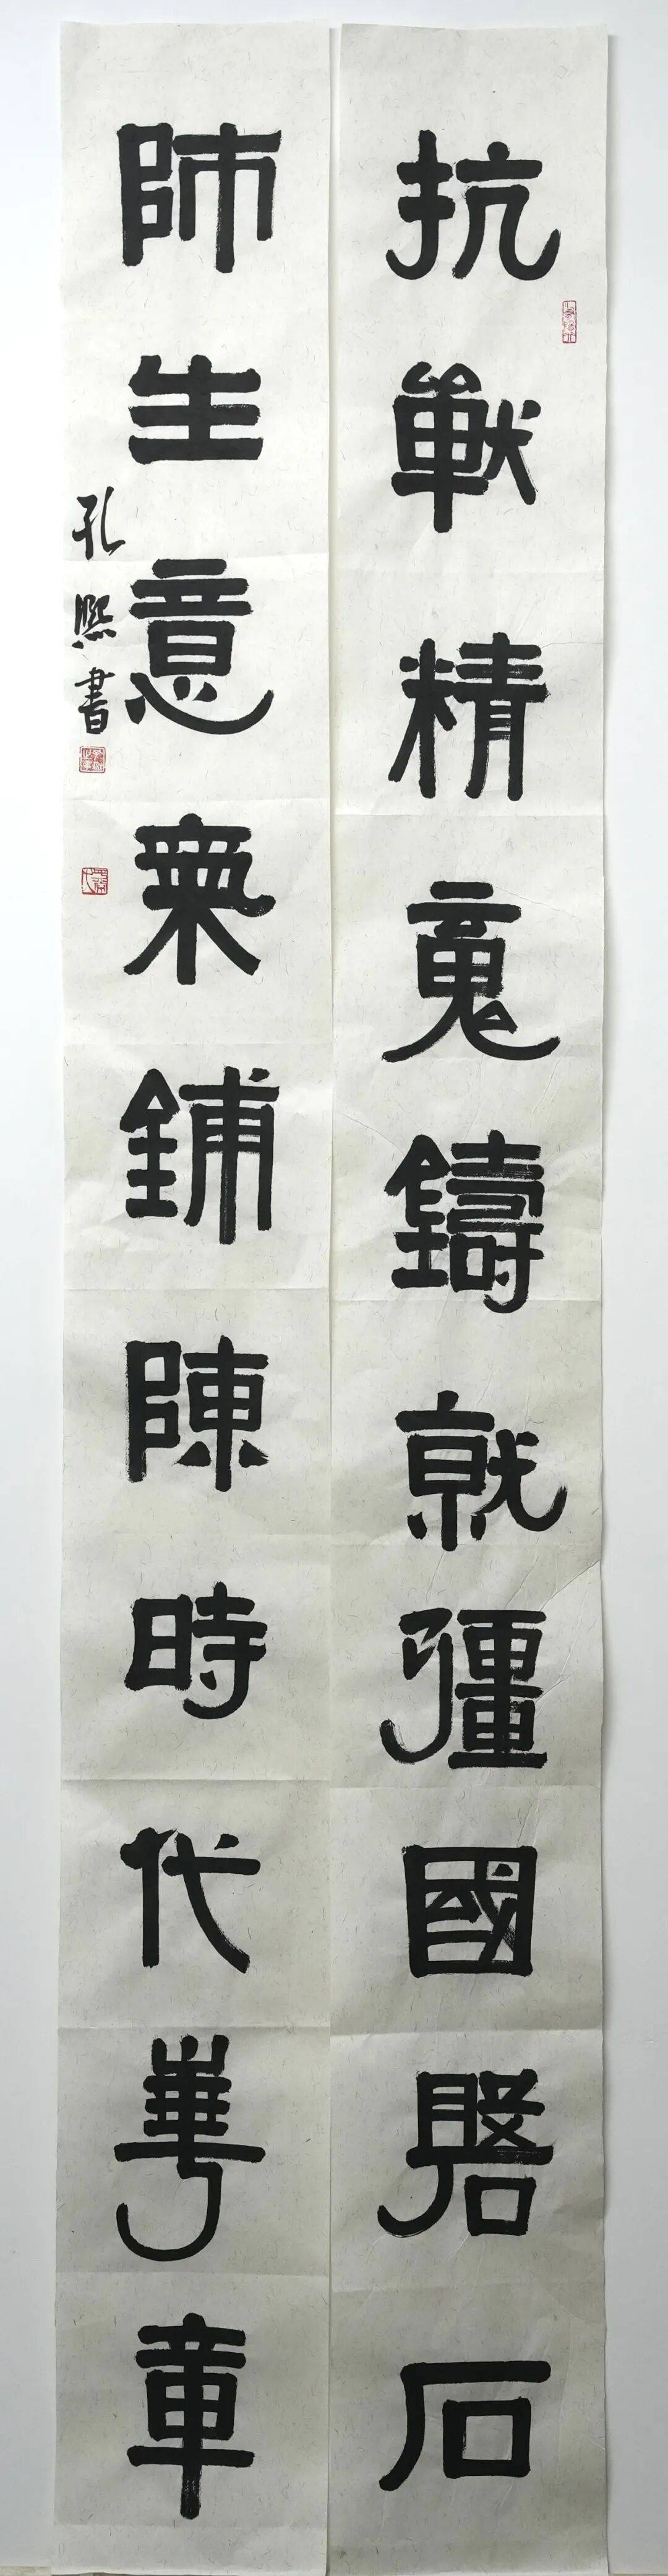 抗戰精魂鑄就彊國磐石
師生意氣鋪陳時代華章
孔熙書